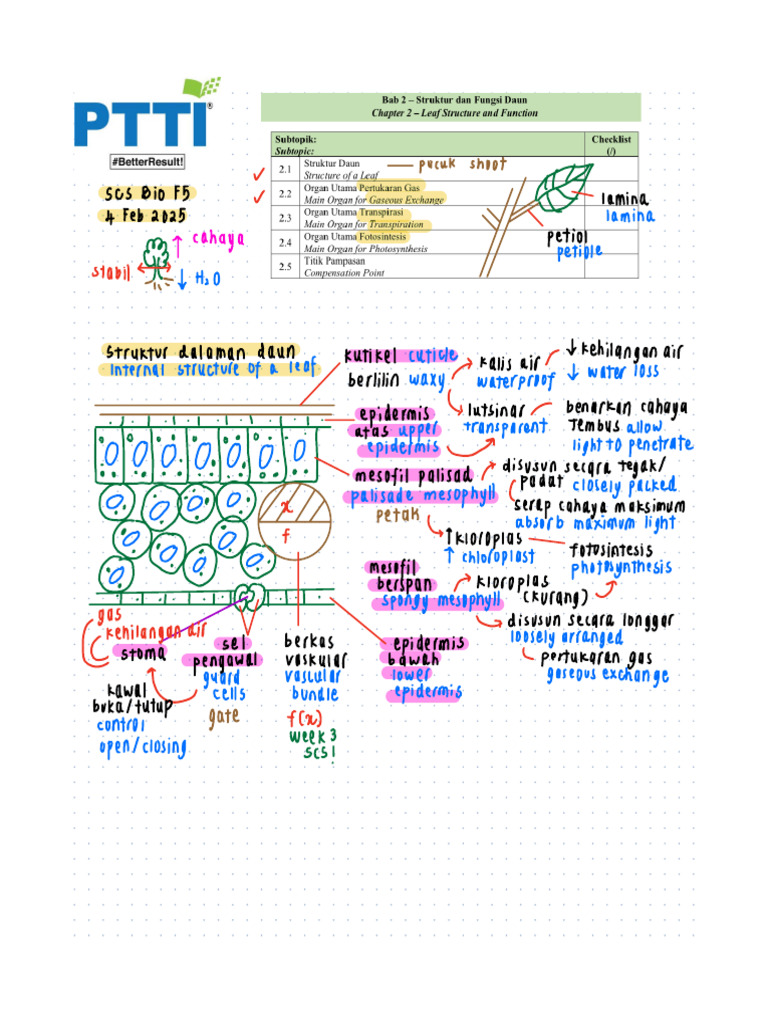 PTTI®
#BetterResult!
SCS Bio F5
4 Feb 2025
↑ cahaya
stabil
↓ H₂O
Bab 2 – Struktur dan Fungsi Daun
Chapter 2 – Leaf Structure and Function
Subtopik:
Subtopic:
Checklist
(/)
2.1
Struktur Daun
Structure of a Leaf
2.2
Organ Utama Pertukaran Gas
Main Organ for Gaseous Exchange
2.3
Organ Utama Transpirasi
Main Organ for Transpiration
2.4
Organ Utama Fotosintesis
Main Organ for Photosynthesis
2.5
Titik Pampasan
Compensation Point
pucuk shoot
lamina
lamina
petiol
petiole
Struktur dalaman daun
Internal structure of a leaf
kutikel cuticle
berlilin waxy
kalis air
waterproof
↓ kehilangan air
↓ water loss
lutsinar
transparent
benarkan cahaya
Tembus allow
light to penetrate
epidermis
atas upper
epidermis
mesofil palisad
palisade mesophyll
petak
disusun secara tegak/
padat closely packed
serap cahaya maksimum
absorb maximum light
↑ kloroplas
↑ chloroplast
fotosintesis
photosynthesis
x
f
mesofil
berspan
spongy mesophyll
kloroplas
(kurang)
disusun secara longgar
loosely arranged
pertukaran gas
gaseous exchange
gas
kehilangan air
stoma
kawal
buka/tutup
control
open/closing
sel
pengawal
guard
cells
gate
berkas
vaskular
vascular
bundle
f(x)
week 3
SCS!
epidermis
bawah
lower
epidermis